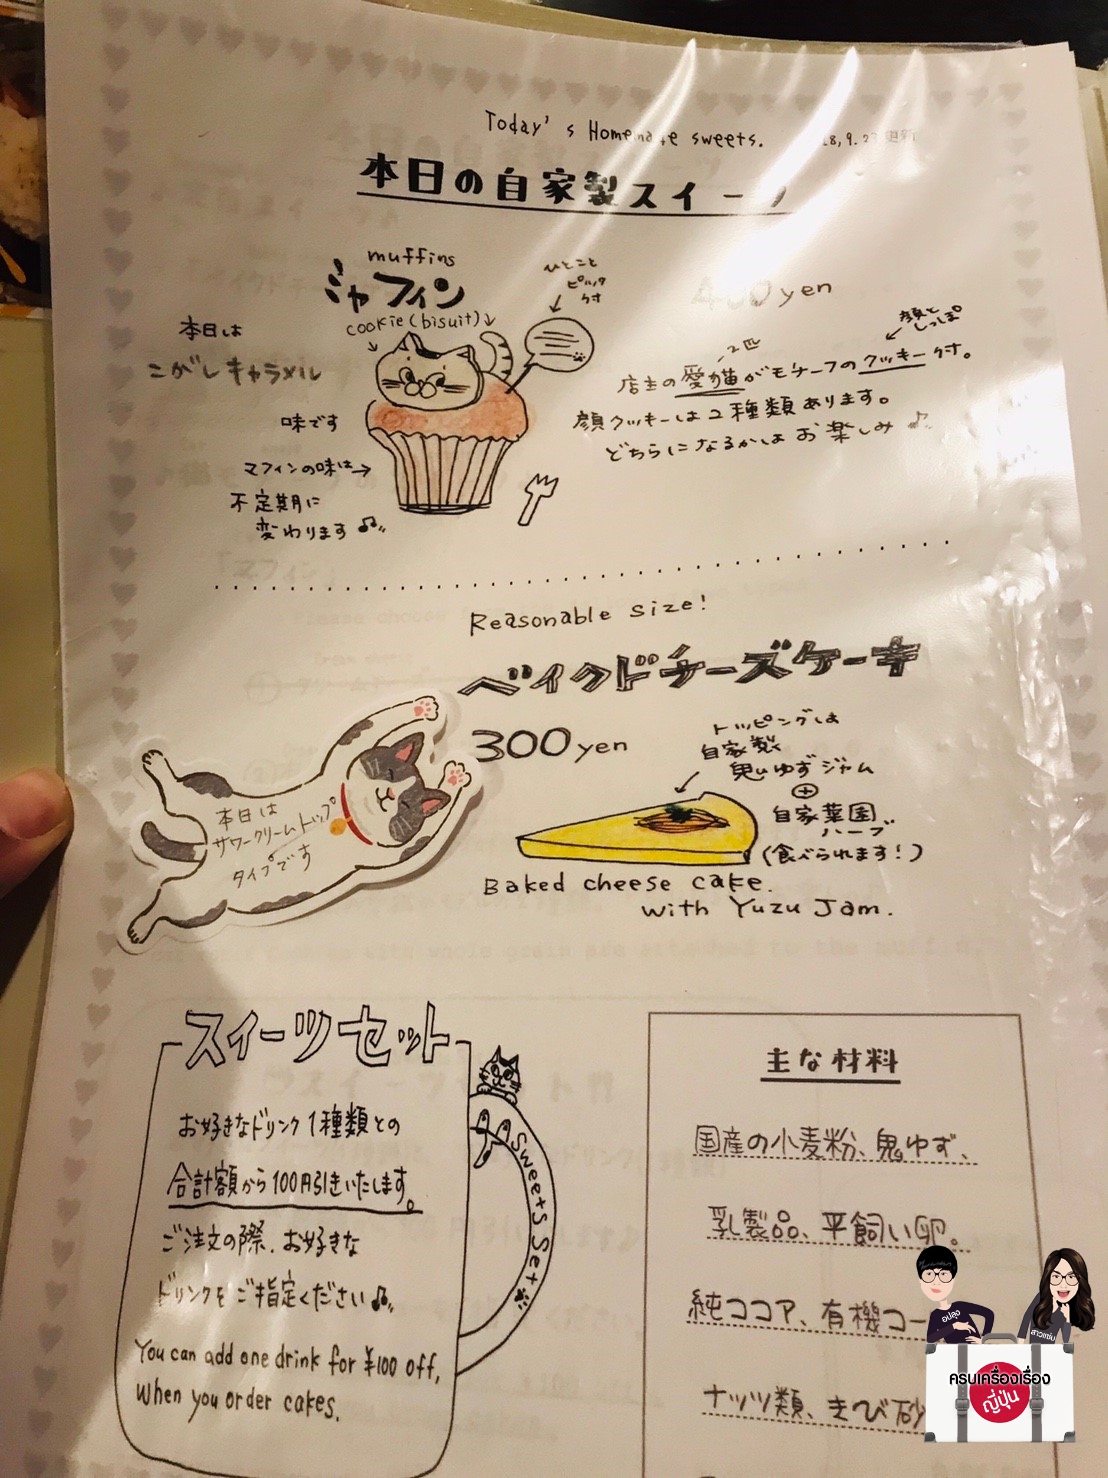 Today's Homemade sweets.
18, 9. 27 更新
本日の自家製スイーツ
muffins
ミャフィン
cookie (bisuit)
ひとこと
ピック
付
400yen
本日は
こがしキャラメル
味です
マフィンの味は→
不定期に
変わります♫
顔と
しっぽ
2匹
店主の愛猫がモチーフのクッキー付。
顔クッキーは2種類あります。
どちらになるかはお楽しみ♪
Reasonable size!
ベイクドチーズケーキ
300yen
トッピングは
自家製
鬼ゆずジャム
⊕
自家菜園
ハーブ
(食べられます!)
本日は
サワークリームトップ
タイプです
Baked cheese cake.
with Yuzu Jam.
スイーツセット
お好きなドリンク1種類との
合計額から100円引きいたします。
ご注文の際、お好きな
ドリンクをご指定ください♫
You can add one drink for ¥100 off,
When you order cakes.
Sweets Set
主な材料
国産の小麦粉、鬼ゆず、
乳製品、平飼い卵。
純ココア、有機コー
ナッツ類、きび砂
อปลุง
สาวแว่น
ครบเครื่องเรื่อง
ญี่ปุ่น